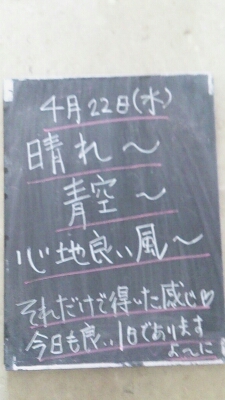 4月22日(水)
晴れ～
青空～
心地良い風～
それだけで得した感じ♡
今日も良い1日であります
よ～に